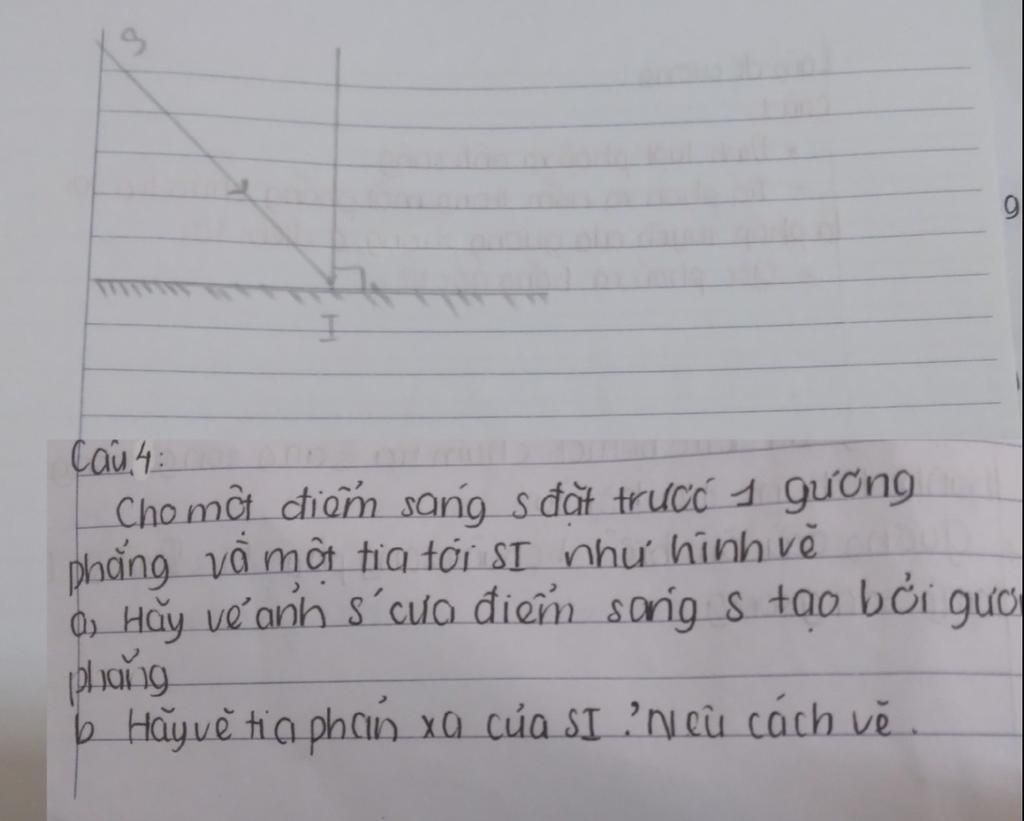 S
I
Câu 4:
Cho một điểm sáng s đặt trước 1 gương
phẳng và một tia tới SI như hình vẽ
a, Hãy vẽ ảnh s' của điểm sáng s tạo bởi gươ
phẳng
b Hãy vẽ tia phản xạ của SI ? Nêu cách vẽ.
9